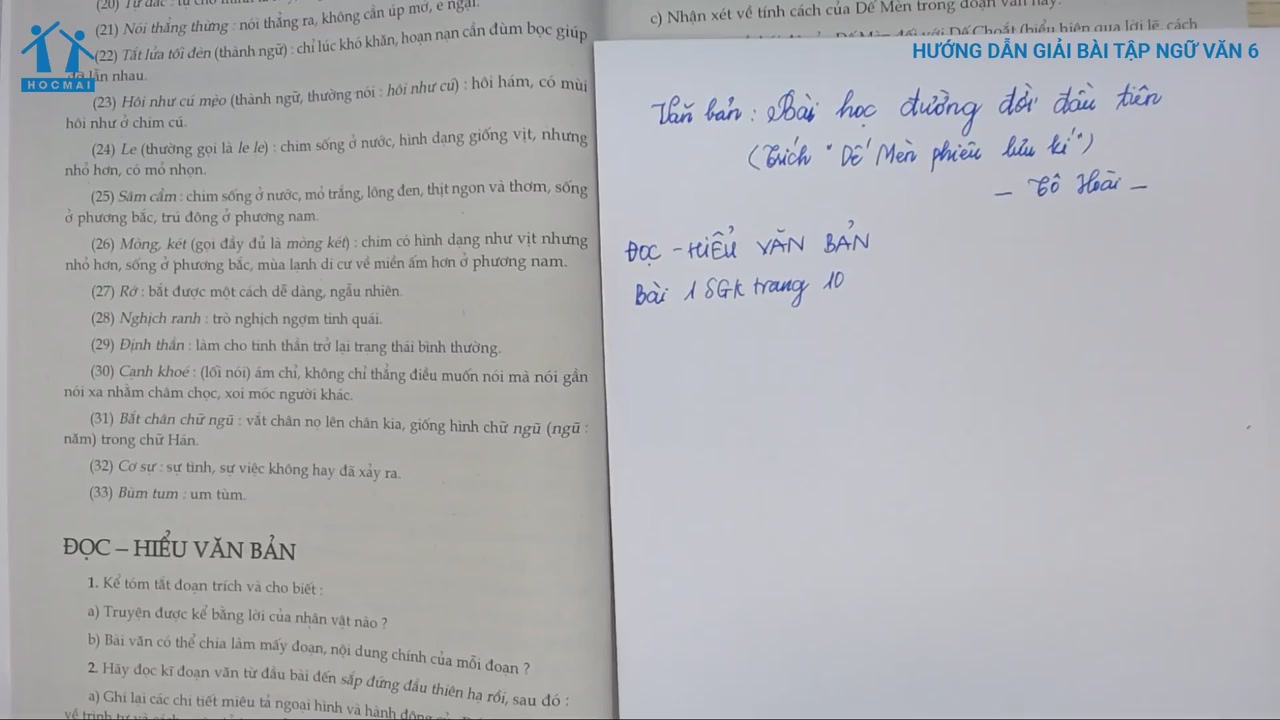 (21) Nói thẳng thừng : nói thẳng ra, không cần úp mở, e ngại.
(22) Tắt lửa tối đèn (thành ngữ) : chỉ lúc khó khăn, hoạn nạn cần đùm bọc giúp
đỡ lẫn nhau.
(23) Hôi như cú mèo (thành ngữ, thường nói : hôi như cú) : hôi hám, có mùi
hôi như ở chim cú.
(24) Le (thường gọi là le le) : chim sống ở nước, hình dạng giống vịt, nhưng
nhỏ hơn, có mỏ nhọn.
(25) Sâm cầm : chim sống ở nước, mỏ trắng, lông đen, thịt ngon và thơm, sống
ở phương bắc, trú đông ở phương nam.
(26) Mòng, két (gọi đầy đủ là mòng két) : chim có hình dạng như vịt nhưng
nhỏ hơn, sống ở phương bắc, mùa lạnh di cư về miền ấm hơn ở phương nam.
(27) Rớ : bắt được một cách dễ dàng, ngẫu nhiên.
(28) Nghịch ranh : trò nghịch ngợm tinh quái.
(29) Định thần : làm cho tinh thần trở lại trạng thái bình thường.
(30) Cạnh khoé : (lối nói) ám chỉ, không chỉ thẳng điều muốn nói mà nói gần
nói xa nhằm châm chọc, xoi móc người khác.
(31) Bắt chân chữ ngũ : vắt chân nọ lên chân kia, giống hình chữ ngũ (ngũ :
năm) trong chữ Hán.
(32) Cơ sự : sự tình, sự việc không hay đã xảy ra.
(33) Bùm tum : um tùm.
ĐỌC – HIỂU VĂN BẢN
1. Kể tóm tắt đoạn trích và cho biết :
a) Truyện được kể bằng lời của nhân vật nào ?
b) Bài văn có thể chia làm mấy đoạn, nội dung chính của mỗi đoạn ?
2. Hãy đọc kĩ đoạn văn từ đầu bài đến sắp đứng đầu thiên hạ rồi, sau đó :
a) Ghi lại các chi tiết miêu tả ngoại hình và hành động
HOCMAI
c) Nhận xét về tính cách của Dế Mèn trong đoạn văn này.
Dế Mèn đối với Dế Choắt (biểu hiện qua lời lẽ, cách
HƯỚNG DẪN GIẢI BÀI TẬP NGỮ VĂN 6
Văn bản : Bài học đường đời đầu tiên
(Trích "Dế Mèn phiêu lưu kí")
– Tô Hoài –
ĐỌC – HIỂU VĂN BẢN
Bài 1 SGK trang 10